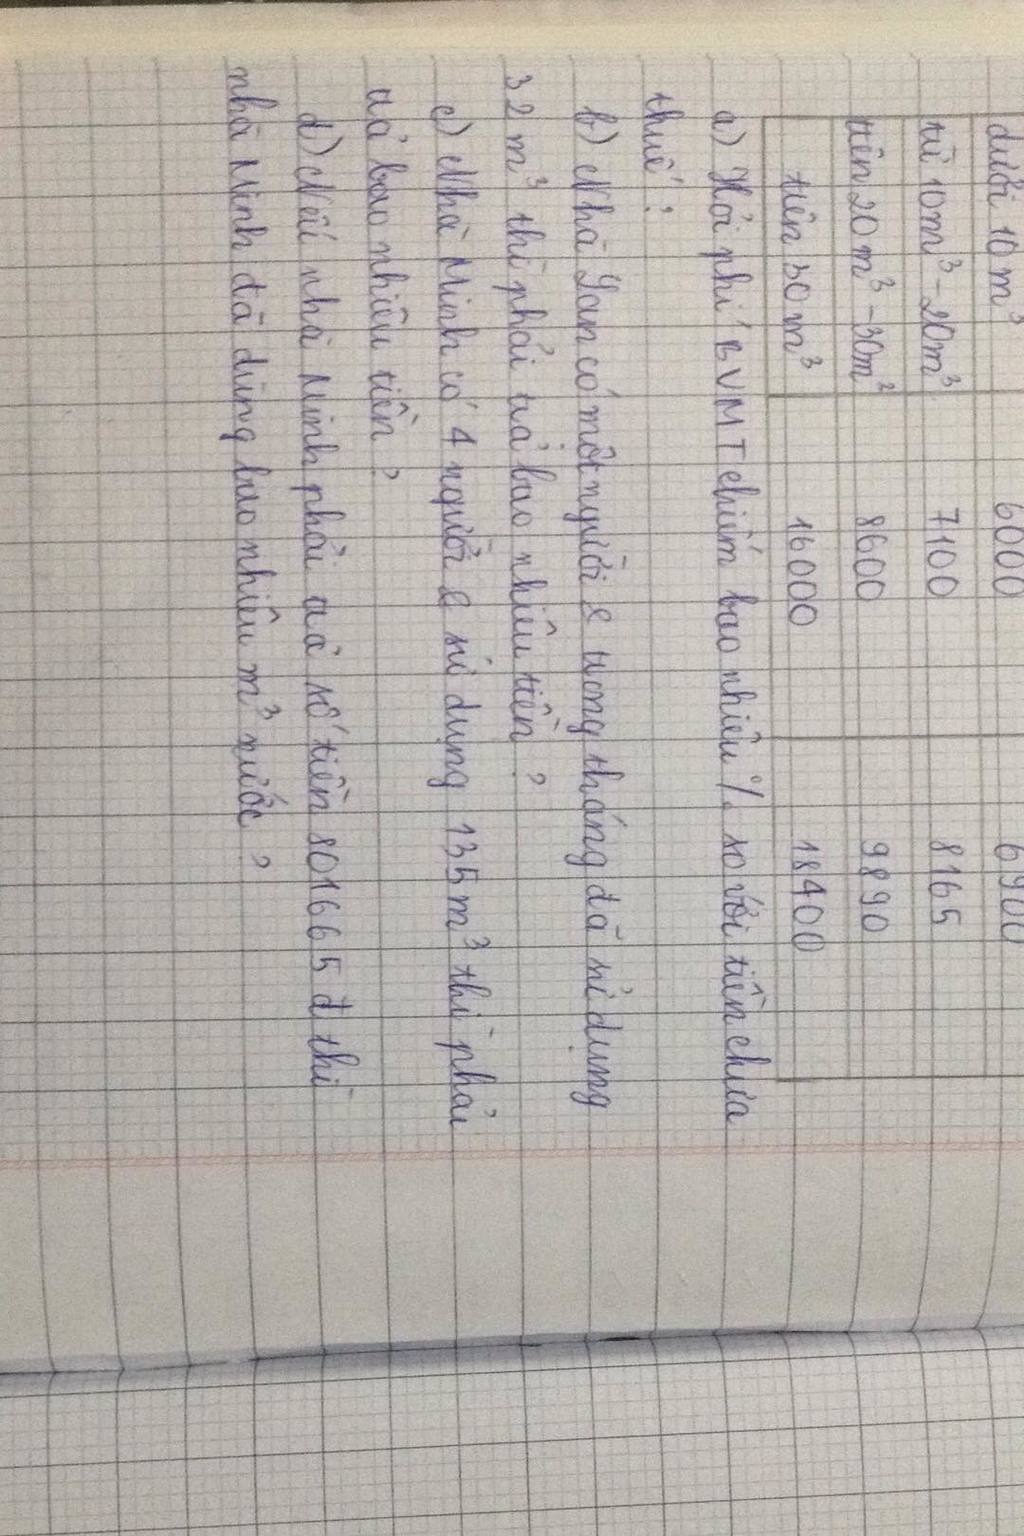 dưới 10 m³ 6000 6900
từ 10m³ - 20m³ 7100 8165
trên 20 m³ - 30m³ 8600 9890
trên 30 m³ 16000 18400
a) Hỏi phí BVMT chiếm bao nhiêu % so với tiền chưa
thuế?
b) Nhà Lan có một người & trong tháng đã sử dụng
32 m³ thì phải trả bao nhiêu tiền?
c) Nhà Minh có 4 người & sử dụng 135 m³ thì phải
trả bao nhiêu tiền?
d) Nếu nhà Minh phải trả số tiền 801665 đ thì
nhà Minh đã dùng bao nhiêu m³ nước?